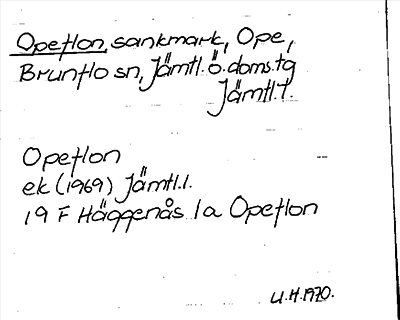 Opeflon, sankmark, Ope,
Brunflo sn, Jämtl. ö. doms. tg
Jämtl. l.
Opeflon
ek (1969) Jämtl. l.
19 F Häggenås 1a Opeflon
U.H. 1970.